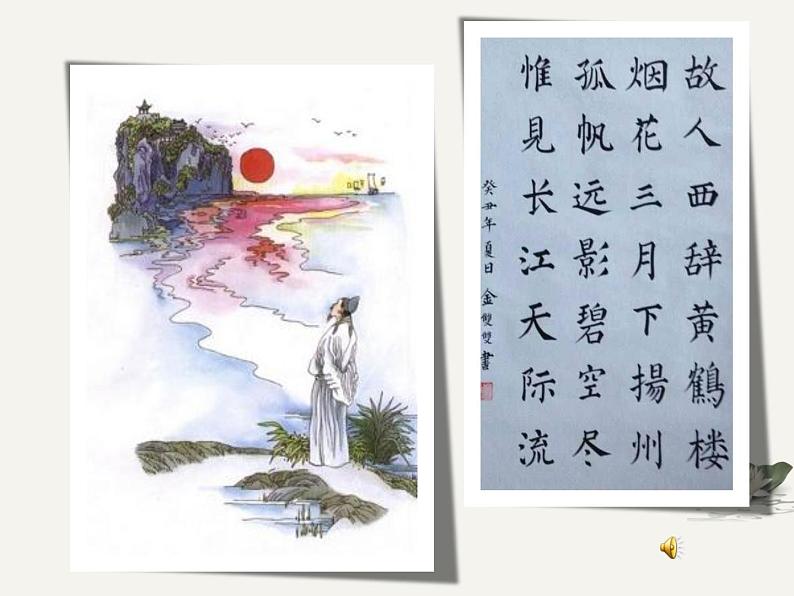 故人西辞黄鶴楼
烟花三月下揚州
孤帆远影碧空尽
惟見长江天际流
癸丑年夏日 金雙雙書